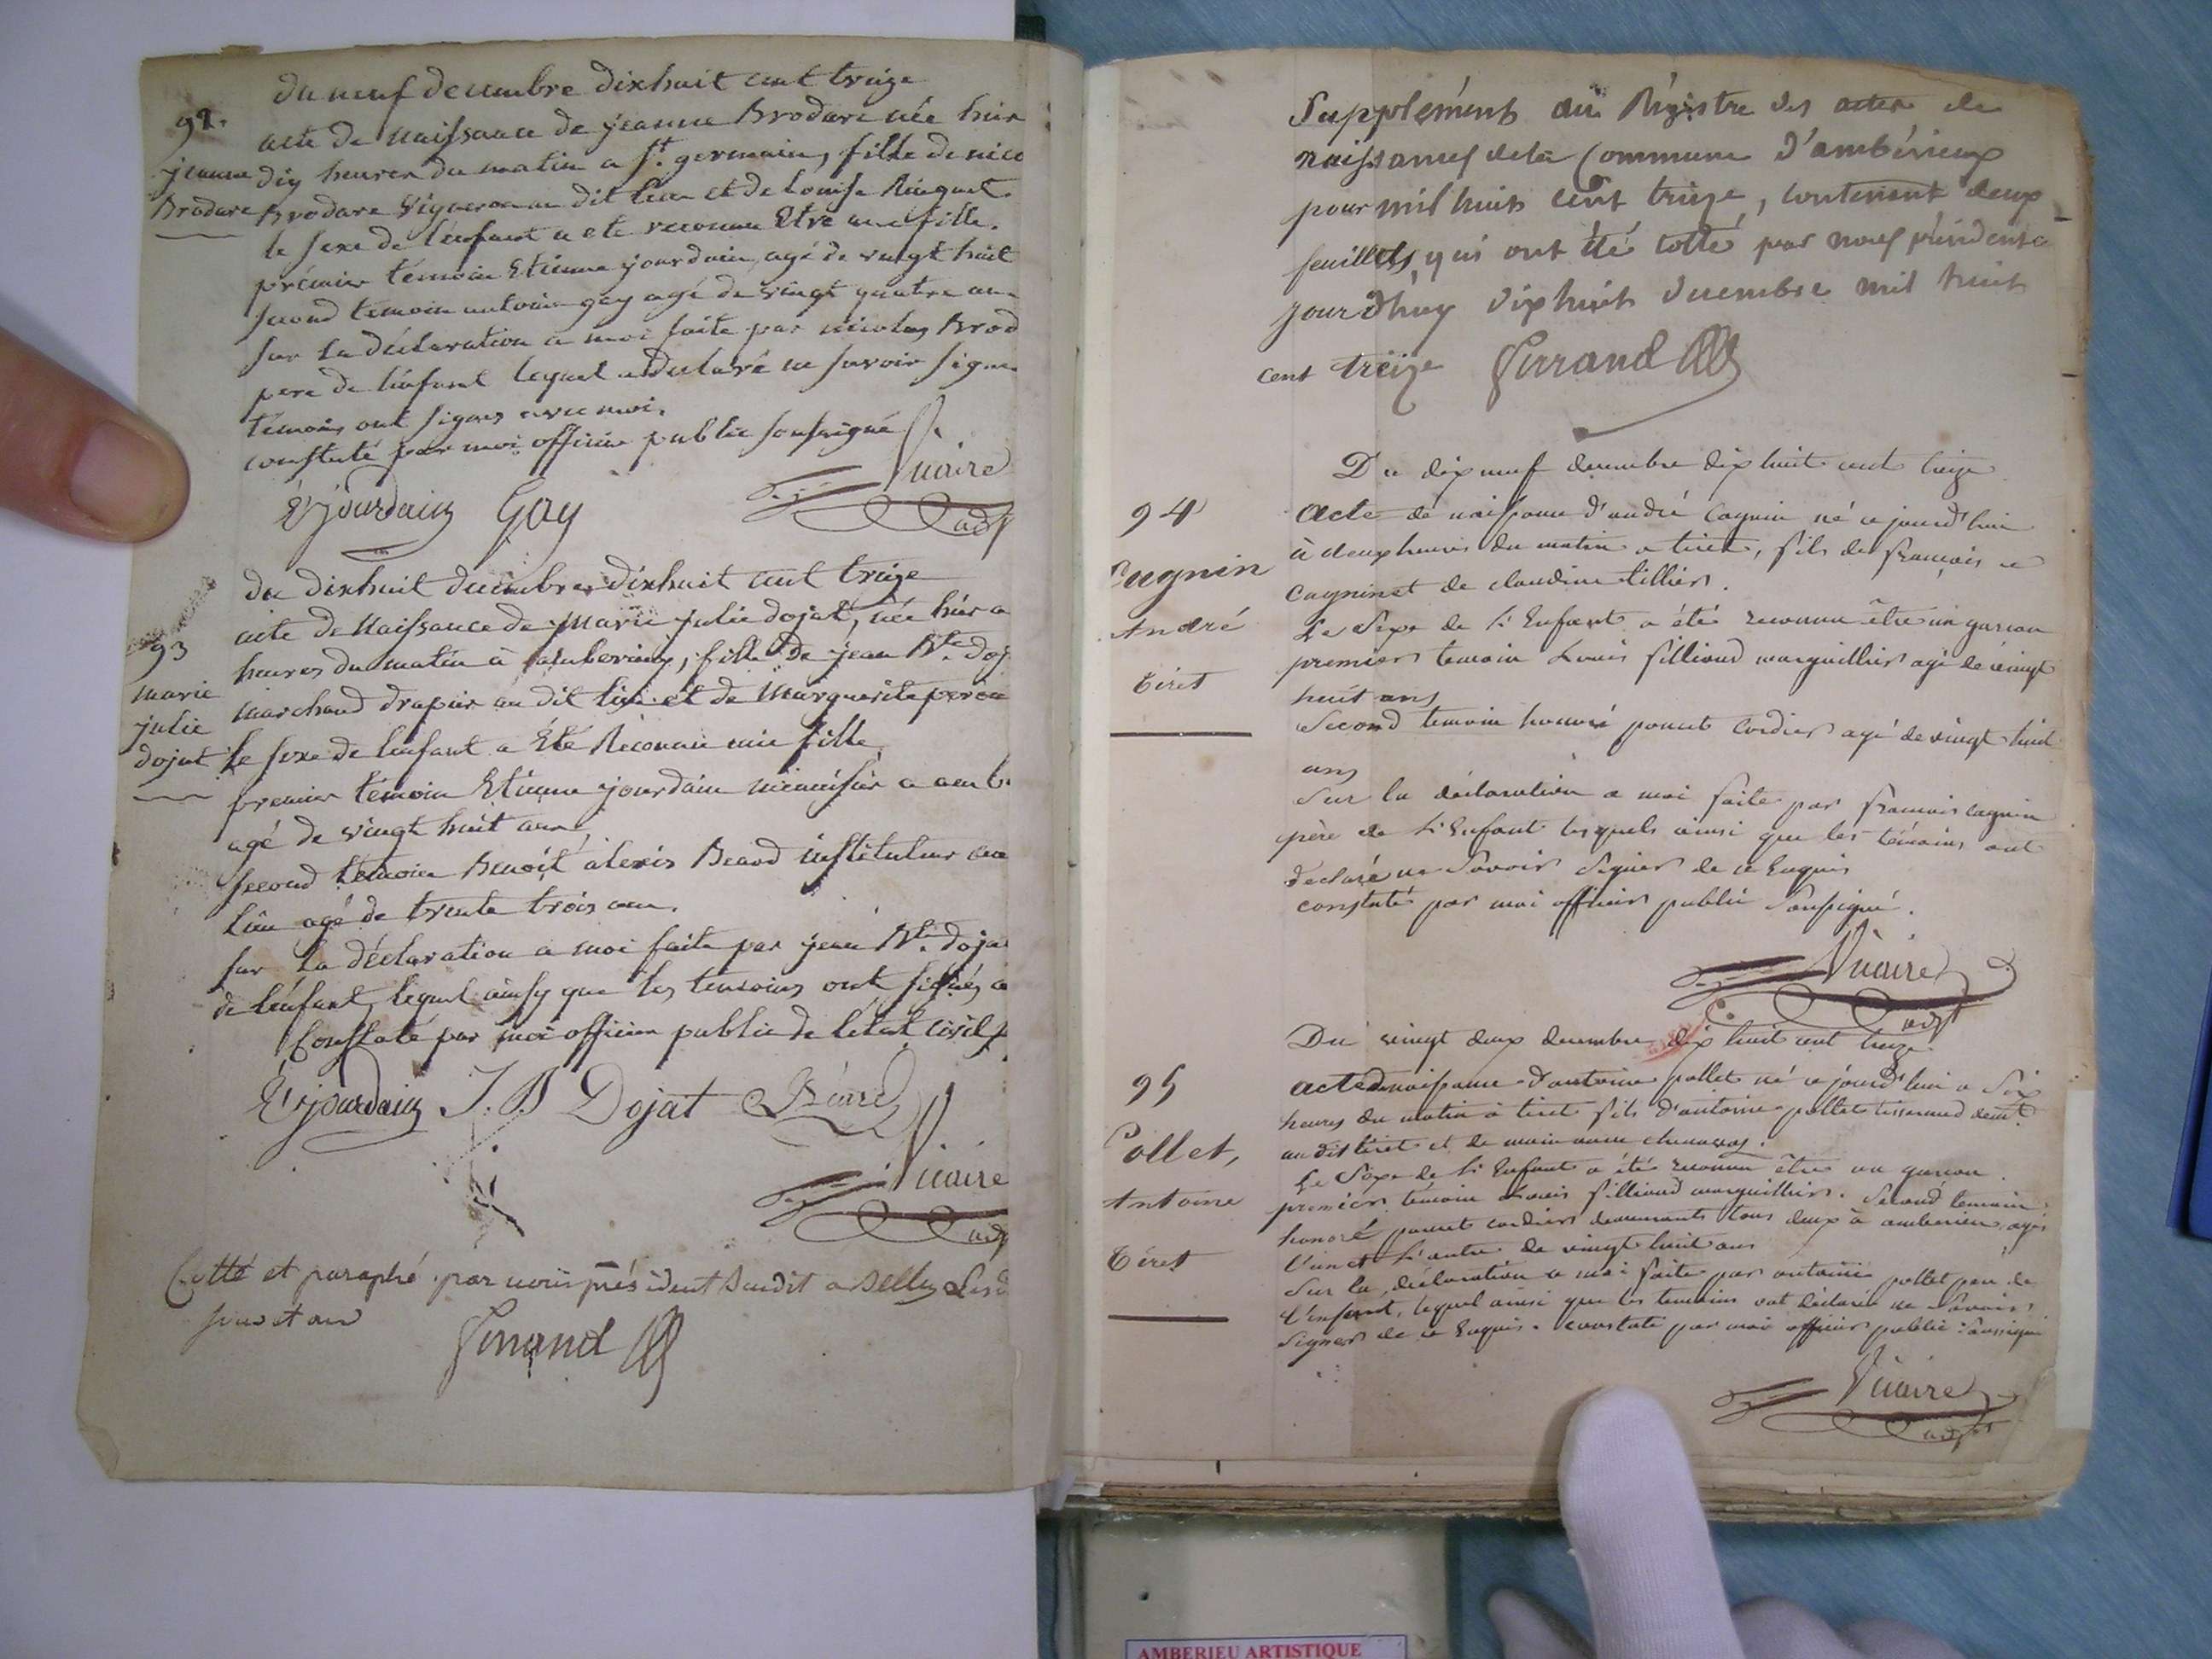 du neuf decembre dixhuit cent treize
92.
acte de Naissance de jeanne Brodare née hier
jeanne
dix heures du matin a St. germain, fille de nico
Brodare
Brodare Vigneron au dit lieu et de Louise Ringuet
le sexe de lenfant a ete reconnu Etre une fille.
prémier témoin Etienne jourdain, agé de vingt huit
second temoin antoine gay agé de vingt quatre ans
sur la déclaration a moi faite par nicolas Brod
pere de lenfant lequel a declaré ne savoir signer
témoins ont signes avec moi.
constaté par moi officier public soussigné
Ejourdain Gay Vicaire
adjt
du dixhuit decembre dixhuit cent treize
93
acte de Naissance de Marie julie dojat, née hier a
heures du matin à amberieux, fille de jean Bte. doj
marie
julie
dojat
marchand drapier au dit lieu et de Marguerite
le sexe de lenfant a Eté Reconnu une fille
premier témoin Etienne jourdain a amb
agé de vingt huit ans
second temoin Benoit alexis Beard instituteur au
lieu agé de trente trois ans.
sur la déclaration a moi faite par jean Bte. doja
de lenfant, lequel ainsy que les temoins ont signés a
Constaté par moi officier public de létat civil
Ejourdain J. B Dojat Béard
Vicaire
adjt
Cotté et paraphé par nous président susdit a Belley Lesd
jour et an
Girrand
Supplément au Régistre des actes de
naissances dela Commune D'ambérieux
pour mil huit cent treize, contenant deux
feuillets, qui ont été cotté par nous président
jourd'huy dixhuit decembre mil huit
cent treize Girrand
Du dix neuf decembre dix huit cent treize
94
Acte de naissance d'andré Cagnin né ce jourd'hui
Cugnin
à deux heures du matin a tiret, fils de françois
André
Cagnin et de claudine tillier.
Le Sexe de l'Enfant a été reconnu être un garcon
Tiret
premier temoin Louis fillioud marguillier agé de vingt
huit ans
Second temoin honoré poncet Cordier agé de vingt huit
ans
Sur la déclaration a moi faite par francois cagnin
père de l'Enfant lesquels ainsi que les témoins ont
déclaré ne Savoir Signer de ce Enquis
constaté par moi officier public Soussigné.
Vicaire
adjt
Du vingt deux decembre dix huit cent treize
95
acte de naissance d'antoine pollet né ce jourd'hui a Six
heures du matin à tiret fils d'antoine pollet tisserand demt.
Pollet,
au dit tiret et de
Le Sexe de l'Enfant a été reconnu être un garcon.
Antoine
premier témoin Louis fillioud marguillier. Second temoin
honoré poncet cordier demeurants tous deux à amberieu, agés
Tiret
l'un et l'autre de vingt huit ans
Sur la déclaration a moi faite par antoine pollet pere de
l'enfant, lequel ainsi que les temoins ont déclaré ne Savoir
Signer de ce Enquis. constaté par moi officier public Soussigné
Vicaire
adjt
AMBERIEU ARTISTIQUE